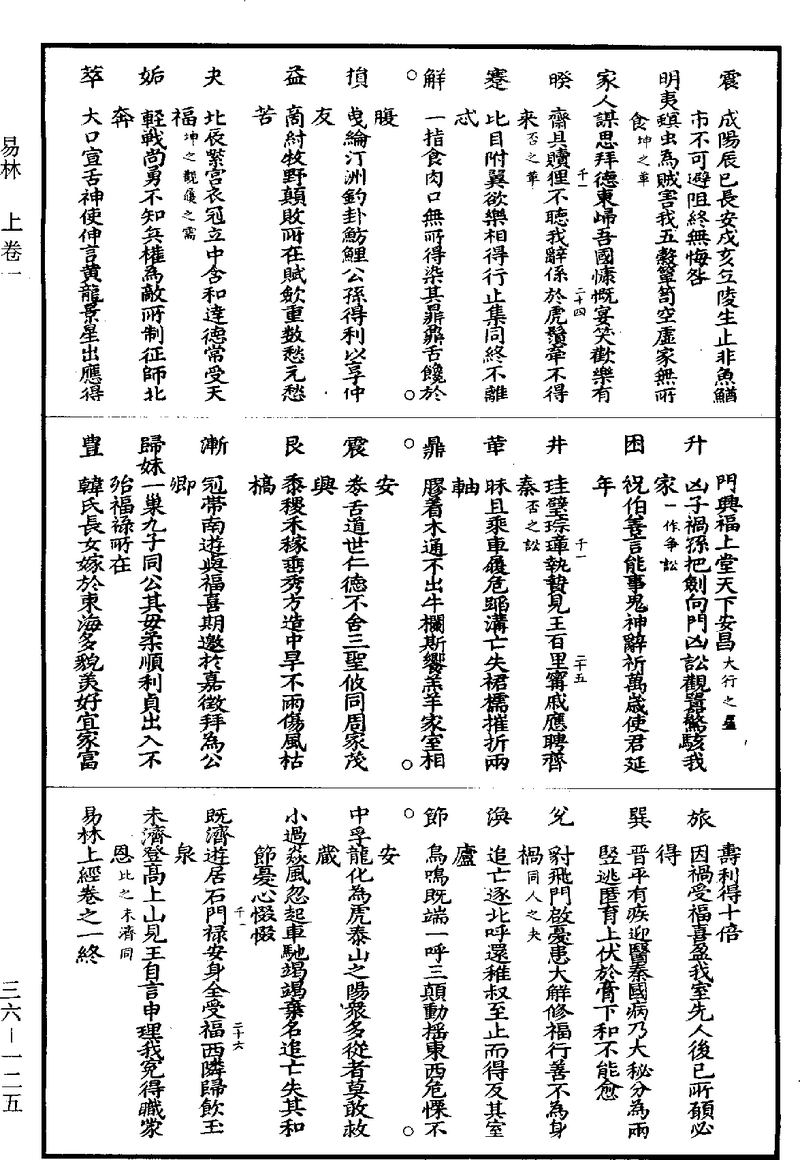 易林　上卷一
震　咸陽辰巳長安戌亥丘陵生止非魚鰌
市不可避阻終無悔咎
明夷螟虫為賊害我五穀簞笥空虛家無所
食坤之革
家人謀思拜德東歸吾國慷慨宴笑歡樂有
千一
睽　齎貝贖狸不聽我辭係於虎鬚牽不得
二十四
來否之革
蹇　比目附翼欲樂相得行止集同終不離
忒
解　一指食肉口無所得染其鼎鼐舌饞於
○腹○
損　曳綸汀洲釣掛魴鯉公孫得利以享仲
友
益　高紂牧野顛敗所在賦斂重數愁元愁
苦
夬　北辰紫宮衣冠立中含和達德常受天
福坤之觀履之需
姤　輕戰尚勇不知兵權為敵所制征師北
奔
萃　大口宣舌神使伸言黃龍景星出應得
門興福上堂天下安昌大行之屋
升　凶子禍孫把劍向門凶訟觀囂驚駭我
家一作爭訟
困　祝伯善言能事鬼神辭祈萬歲使君延
年
千一
井　珪璧琮璋執贄見王百里甯戚應聘齊
二十五
秦否之訟
革　昧旦乘車履危蹈溝亡失裙襦摧折兩
軸
鼎　膠着木通不出牛欄斯饗羔羊家室相
○安○
震　泰舌道世仁德不舍三聖攸同周家茂
興
艮　黍稷禾稼垂秀方造中旱不雨傷風枯
槁
漸　冠帶南遊與福喜期邀於嘉徵拜為公
卿
歸妹一巢九子同公其毋柔順利貞出入不
殆福祿所在
豊　韓氏長女嫁於東海多貌美好宜家富
壽利得十倍
旅　因禍受福喜盈我室先人後已所願必
得
巽　晉平有疾迎醫秦國病乃大秘分為兩
竪逃匿育上伏於膏下和不能愈
兌　豺飛門啟憂患大解修福行善不為身
禍同人之夬
渙　追亡逐北呼還稚叔至止而得反其室
廬
節　鳥鳴既端一呼三顛動搖東西危慄不
○安○
中孚龍化為虎泰山之陽眾多從者莫敢救
藏
小過猋風忽起車馳竭竭棄名追亡失其和
節憂心惙惙
千一
既濟遊居石門祿安身全受福西隣歸飲玉
二十六
泉
未濟登高上山見王自言申理我冤得職蒙
恩比之未濟同
易林上經卷之一終
三六－一二五